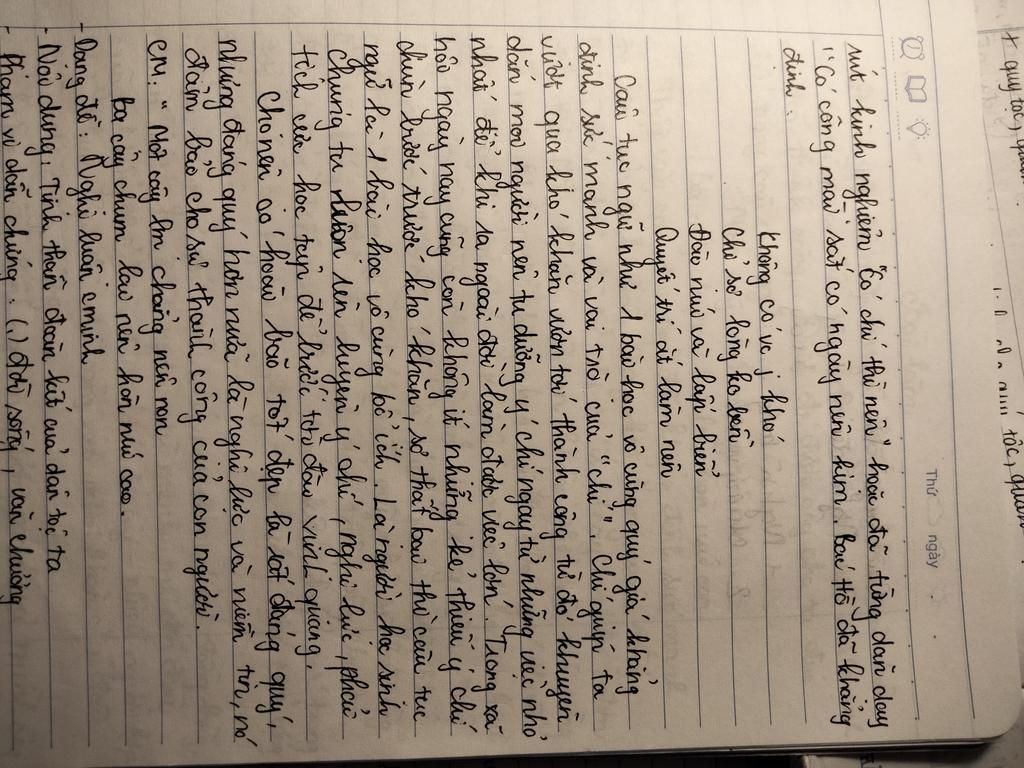 + quy tộc, quan
tộc, quan
Thứ ngày
rút kinh nghiệm "Có chí thì nên" hoặc đã từng dăn dạy
"Có công mài sắt có ngày nên kim". Bác Hồ đã khẳng
định:
Không có vc j khó
Chỉ sợ lòng ko bền
Đào núi và lấp biển
Quyết trí ắt làm nên
Câu tục ngữ như 1 bài học vô cùng quý giá khẳng
định sức mạnh và vai trò của "chí". Chí giúp ta
vượt qua khó khăn vươn tới thành công từ đó khuyên
dăn mọi người nên tu dưỡng ý chí ngay từ những việc nhỏ
nhất để khi ra ngoài đời làm được việc lớn. Trong xã
hội ngày nay cũng còn không ít những kẻ thiếu ý chí
chùn bước trước khó khăn, sợ thất bại thì câu tục
ngữ là 1 bài học vô cùng bổ ích. Là người học sinh
chúng ta luôn rèn luyện ý chí, nghị lực, phải
tích cực học tập để bước tới đài vinh quang.
Cho nên có hoài bão tốt đẹp là rất đáng quý,
nhưng đáng quý hơn nữa là nghị lực và niềm tin, nó
đảm bảo cho sự thành công của con người.
CM: "Một cây lm chẳng nên non
ba cây chụm lại nên hòn núi cao.
- Dạng đề: Nghị luận cminh
- Nội dung: Tinh thần đoàn kết của dân tộc ta
- Phạm vi dẫn chứng: (.) đời sống, văn chương